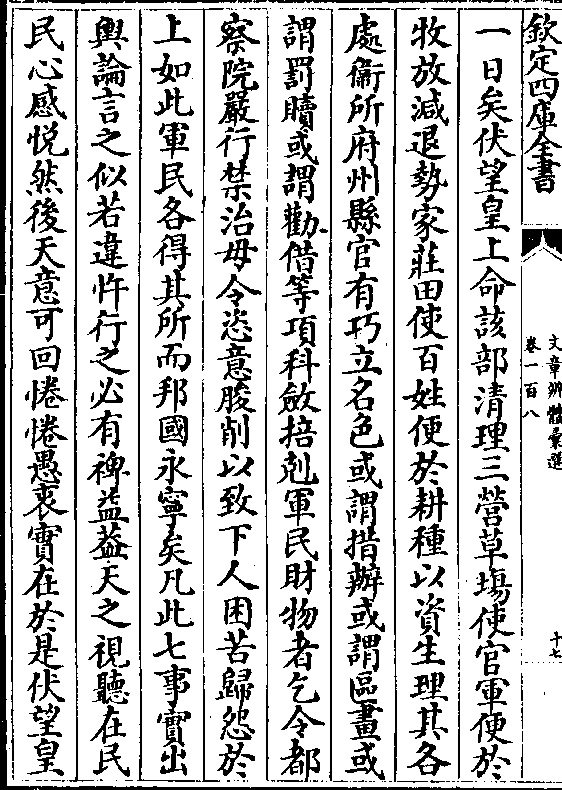 欽定四庫全書
文章辨體彙選
卷一百八
十七
一日矣伏望皇上命該部清理三營草塲使官軍便於
牧放減退勢家莊田使百姓便於耕種以資生理其各
處衞所府州縣官有巧立名色或謂措辦或謂區畫或
謂罰贖或謂勸借等項科斂掊剋軍民財物者乞令都
察院嚴行禁治毋令恣意朘削以致下人困苦歸怨於
上如此軍民各得其所而邦國永寧矣凡此七事實出
輿論言之似若違忤行之必有裨益葢天之視聽在民
民心感悦然後天意可回惓惓愚衷實在於是伏望皇